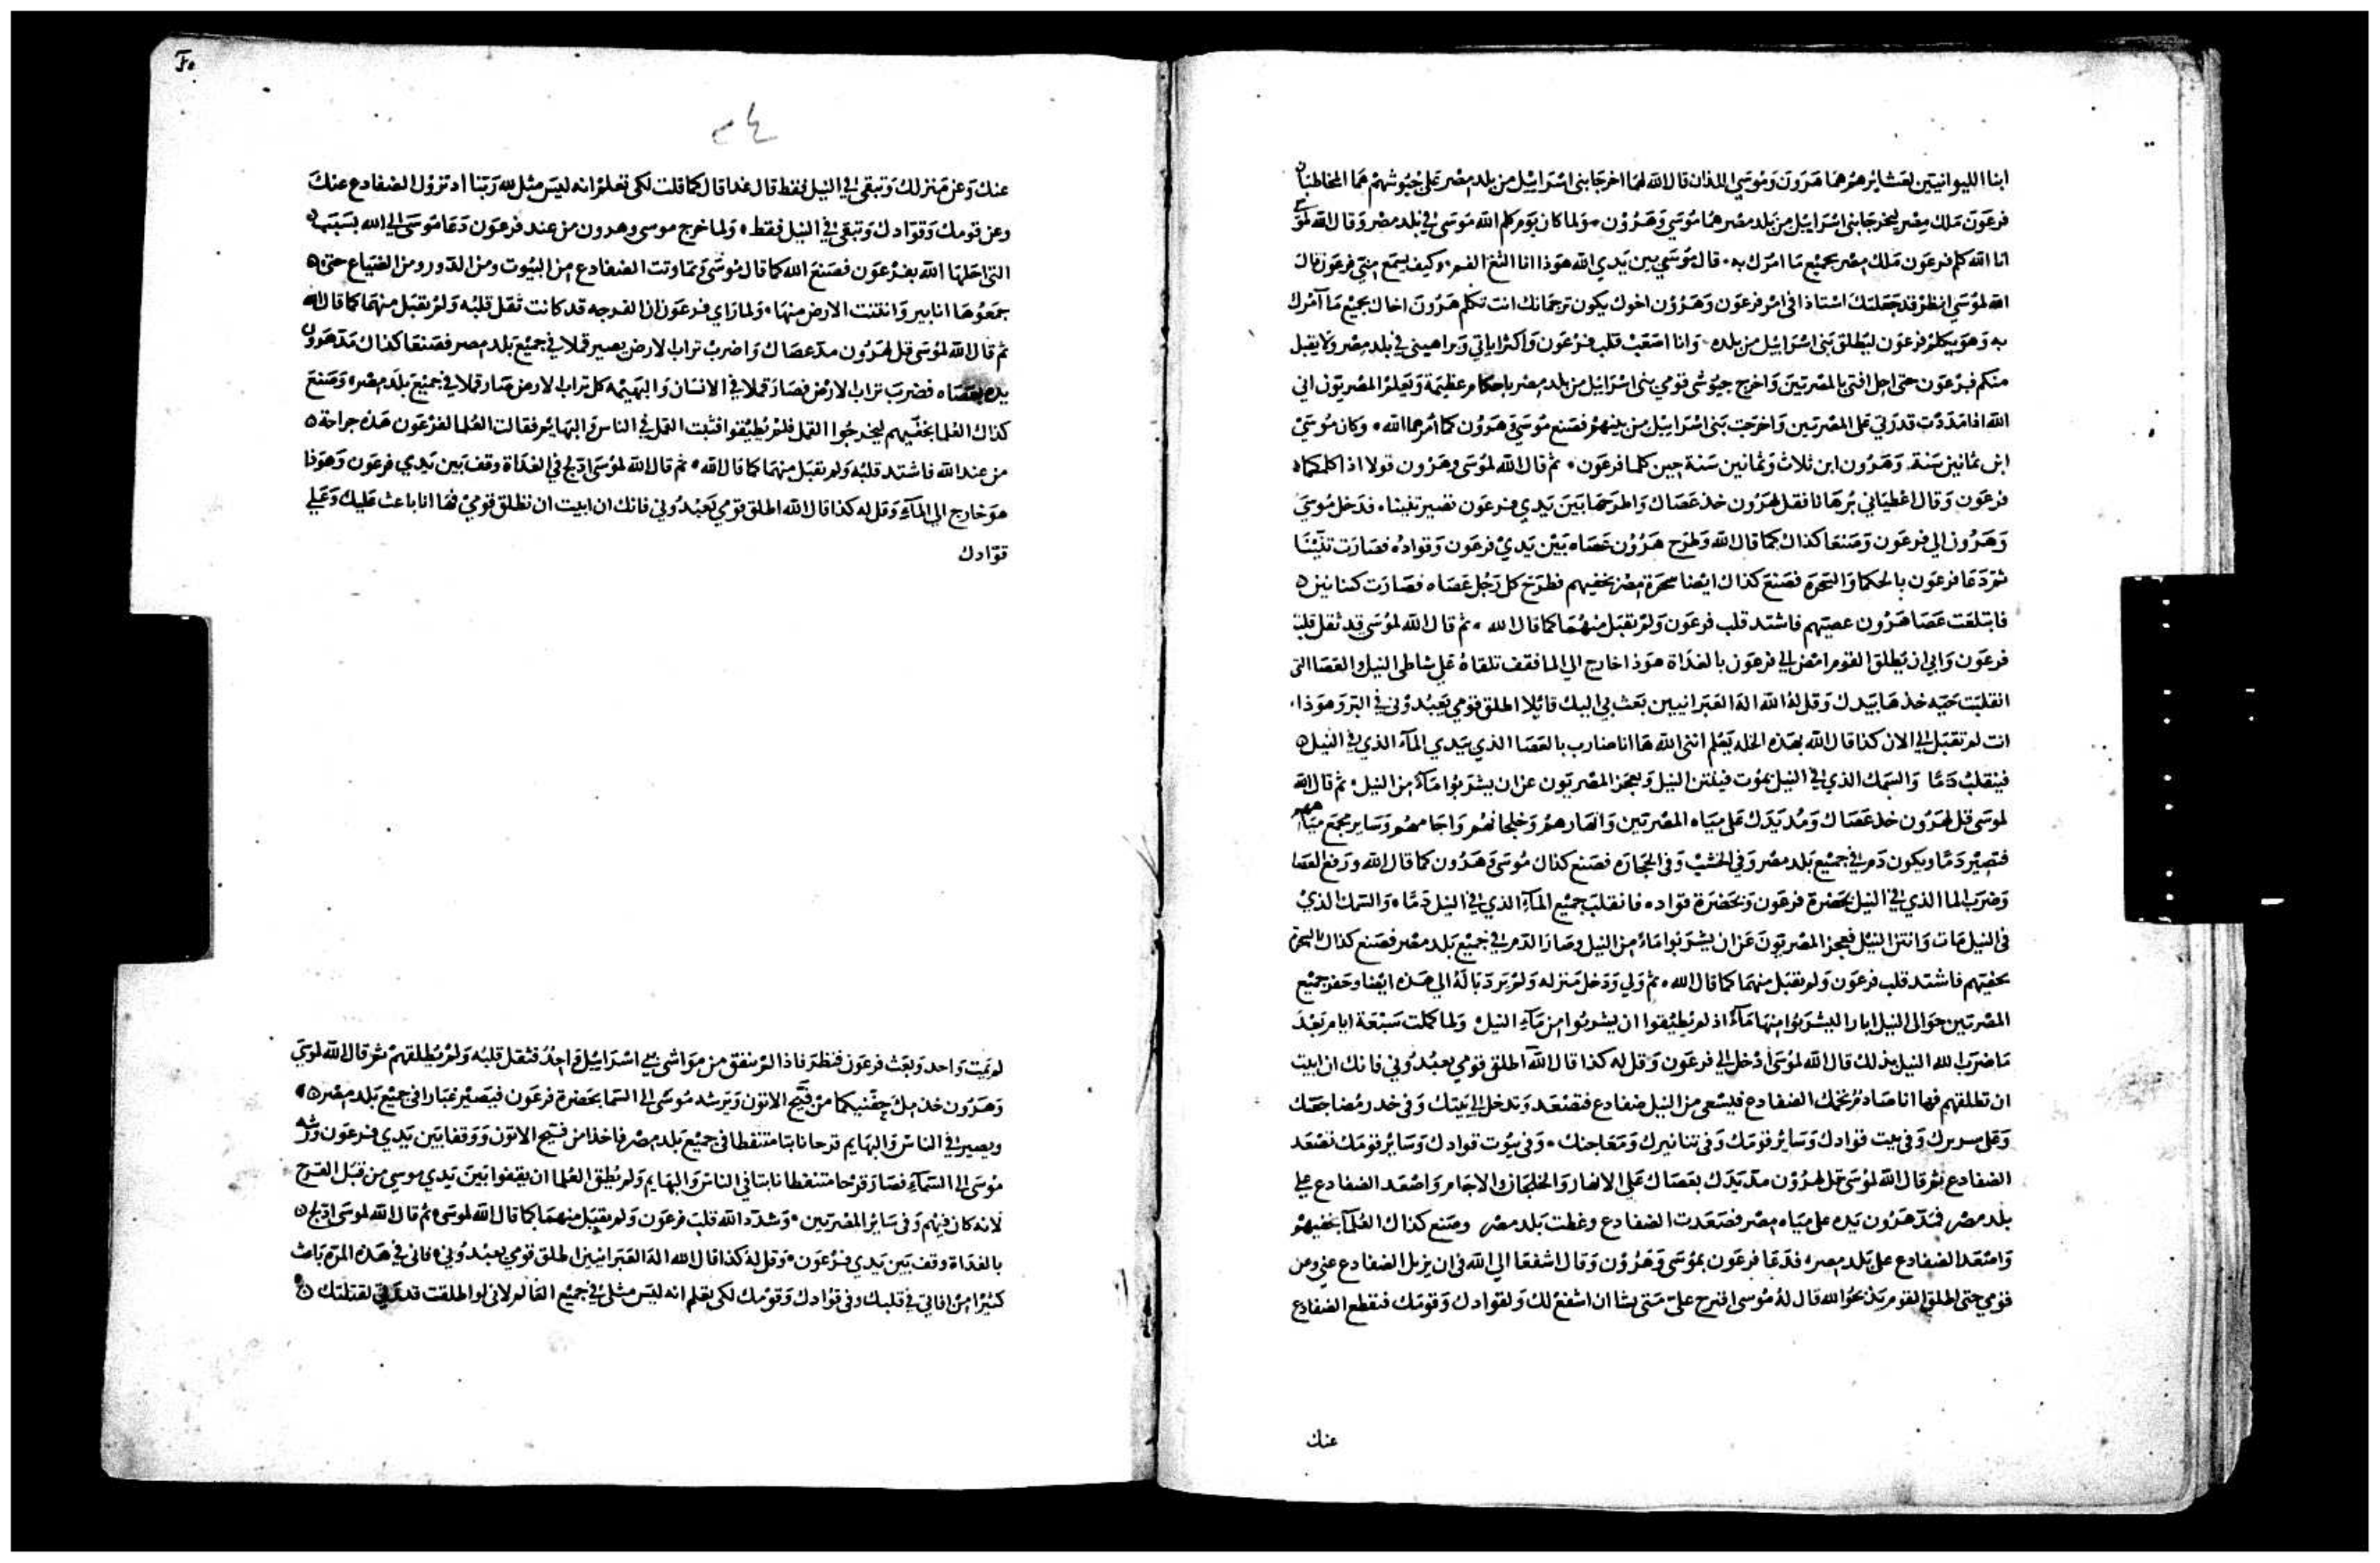 ابنا الليوانيين لعشايرهم هما هَرون وموسى اللذان قال الله لهما اخرجا بنى اسرايل من بلد مصر على جيوشهم هما المخاطبان
فرعون ملك مصر ليخرجا بنى اسرايل من بلد مصر هما موسي وهرون ولما كان يوم كلم الله موسى في بلد مصر وقال الله لموسى
انا الله كلم فرعون ملك مصر بجميع ما امرك به قال موسي بين يدي الله هوذا انا الثغ الفم وكيف يسمع مني فرعون قال
الله لموسي انظر قد جعلتك استاذا في امر فرعون وهرون اخوك يكون ترجمانك انت تكلم هرون اخاك بجميع ما آمرك
به وهو يكلم فرعون ليطلق بنى اسرايل من بلده وانا اصعب قلب فرعون واكثر اياتي وبراهيني في بلد مصر ولا يقبل
منكم فرعون حتى احل افتي بالمصريين واخرج جيوشي قومي بنى اسرايل من بلد مصر باحكام عظيمة ويعلم المصريون اني
الله اذا مددت قدرتي على المصريين واخرجت بنى اسرايل من بينهم فصنع موسي وهرون كما امرهما الله وكان موسي
ابن ثمانين سنة وهرون ابن ثلاث وثمانين سنة حين كلما فرعون ثم قال الله لموسى وهرون قولا اذا كلمكما
فرعون وقال اعطياني برهانا فقل لهرون خذ عصاك واطرحها بين يدي فرعون تصير تنينا فدخل موسي
وهرون الي فرعون وصنعا كذاك كما قال الله وطرح هرون عصاه بين يدي فرعون وقواده فصارت تنينا
ثم دعا فرعون بالحكما والسحرة فصنع كذاك ايضا سحرة مصر بخفيهم فطرح كل رجل عصاه فصارت كتنانين
فابتلعت عصا هرون عصيهم فاشتد قلب فرعون ولم يقبل منهما كما قال الله ثم قال الله لموسى قد ثقل قلب
فرعون وابى ان يطلق القوم امض الى فرعون بالغداة هوذا خارج الى الما فقف تلقاه على شاطى النيل والعصا التى
انقلبت حية خذها بيدك وقل له الله اله العبرانيين بعث بي اليك قائلا اطلق قومي يعبدوني في البر وهوذا
انت لم تقبل الي الان كذا قال الله بهذه الخلة يعلم انني الله ها انا ضارب بالعصا الذي بيدي الماء الذي في النيل
فينقلب دما والسمك الذي في النيل يموت فينتن النيل ويعجز المصريون عن ان يشربوا ماء من النيل ثم قال الله
لموسى قل لهرون خذ عصاك ومد يدك على مياه المصريين وانهارهم وخلجانهم واجامهم وساير مجمع مياههم
فتصير دما ويكون دم في جميع بلد مصر وفي الخشب وفى الحجارة فصنع كذاك موسى وهرون كما قال الله ورفع العصا
وضرب الما الذي في النيل بحضرة فرعون وبحضرة قواده فانقلب جميع الماء الذي في النيل دما والسمك الذي
فى النيل مات وانتن النيل فعجز المصريون عن ان يشربوا ماء من النيل وصار الدم في جميع بلد مصر فصنع كذاك السحرة
بخفيهم فاشتد قلب فرعون ولم يقبل منهما كما قال الله ثم ولي ودخل منزله ولم يرد باله الي هذه ايضا وحفر جميع
المصريين حوالى النيل ابارا ليشربوا منها ماء اذ لم يطيقوا ان يشربوا من ماء النيل ولما كملت سبعة ايام بعد
ما ضرب الله النيل بذلك قال الله لموسى ادخل الى فرعون وقل له كذا قال الله اطلق قومي يعبدوني فانك ان ابيت
ان تطلقهم فها انا صادم تخمك الضفادع فليسعى من النيل ضفادع فتصعد وتدخل الى بيتك وفى خدر مضاجعك
وعلى سريرك وفى بيت قوادك وساير قومك وفى تنانيرك ومعاجنك وفى بيوت قوادك وساير قومك تصعد
الضفادع ثم قال الله لموسى قل لهرون مد يدك بعصاك على الانهار والخلجان والاجام واصعد الضفادع على
بلد مصر فمد هرون يده على مياه مصر فصعدت الضفادع وغطت بلد مصر وصنع كذاك العلماء بخفيهم
واصعد الضفادع على بلد مصر فدعا فرعون بموسى وهرون وقال اشفعا الي الله فى ان يزيل الضفادع عني وعن
قومي حتى اطلق القوم يذبحوا لله قال له موسى اقترح على متى يشا ان اشفع لك ولقوادك وقومك فتقطع الضفادع
عنك
عنك وعن منزلك وتبقى في النيل فقط قال غدا قال كما قلت لكى تعلم انه ليس مثل الله ربنا اد تزول الضفادع عنك
وعن قومك وقوادك وتبقى في النيل فقط ولما خرج موسى وهرون من عند فرعون دعا موسى الى الله بسبب
التى احلها الله بفرعون فصنع الله كما قال موسى وتماوتت الضفادع من البيوت ومن الدور ومن الضياع حتى
جمعوها انابير وانتنت الارض منها ولما راي فرعون ان الفرجه قد كانت ثقل قلبه ولم يقبل منهما كما قال الله
ثم قال الله لموسى قل لهرون مد عصاك واضرب تراب الارض يصير قملا في جميع بلد مصر فصنعا كذاك مد هرون
يده بعصاه فضرب تراب الارض فصار قملا في الانسان والبهيمه كل تراب الارض صار قملا في جميع بلد مصر وصنع
كذاك العلما بخفيهم ليخرجوا القمل فلم يطيقوا فثبت القمل في الناس والبهايم فقالت العلما لفرعون هذه جراحة
من عند الله فاشتد قلبه ولم يقبل منهما كما قال الله ثم قال الله لموسى ادلج في الغداة وقف بين يدي فرعون وهوذا
هو خارج الي الماء وقل له كذا قال الله اطلق قومي يعبدوني فانك ان ابيت ان تطلق قومي فها انا باعث عليك وعلى
قوادك
لم يمت واحد وبعث فرعون فنظر فاذا لم ينفق من مواشى بنى اسرايل واحد فثقل قلبه ولم يطلقهم ثم قال الله لموسى
وهرون خذ ملء حفنيكما من فتيح الاتون ويرشه موسى الى السما بحضرة فرعون فيصير غبارا فى جميع بلد مصر
ويصير في الناس والبهايم قرحا نابتا متنفطا فى جميع بلد مصر فاخذا من فتيح الاتون ووقفا بين يدي فرعون ورشه
موسى الى السماء فصار قرحا متنفطا نابتا في الناس والبهايم ولم يطق العلما ان يقفوا بين يدي موسي من قبل القرح
لانه كان فيهم وفى ساير المصريين وشدد الله قلب فرعون ولم يقبل منهما كما قال الله لموسى ثم قال الله لموسى ادلج
بالغداة وقف بين يدي فرعون وقل له كذا قال الله اله العبرانيين اطلق قومي يعبدوني فانى في هذه المرة باعث
كثيرا من افاتي في قلبك وفى قوادك وقومك لكى تعلم انه ليس مثلي في جميع العالم لانى لو اطلقت قدرتي لقتلتك